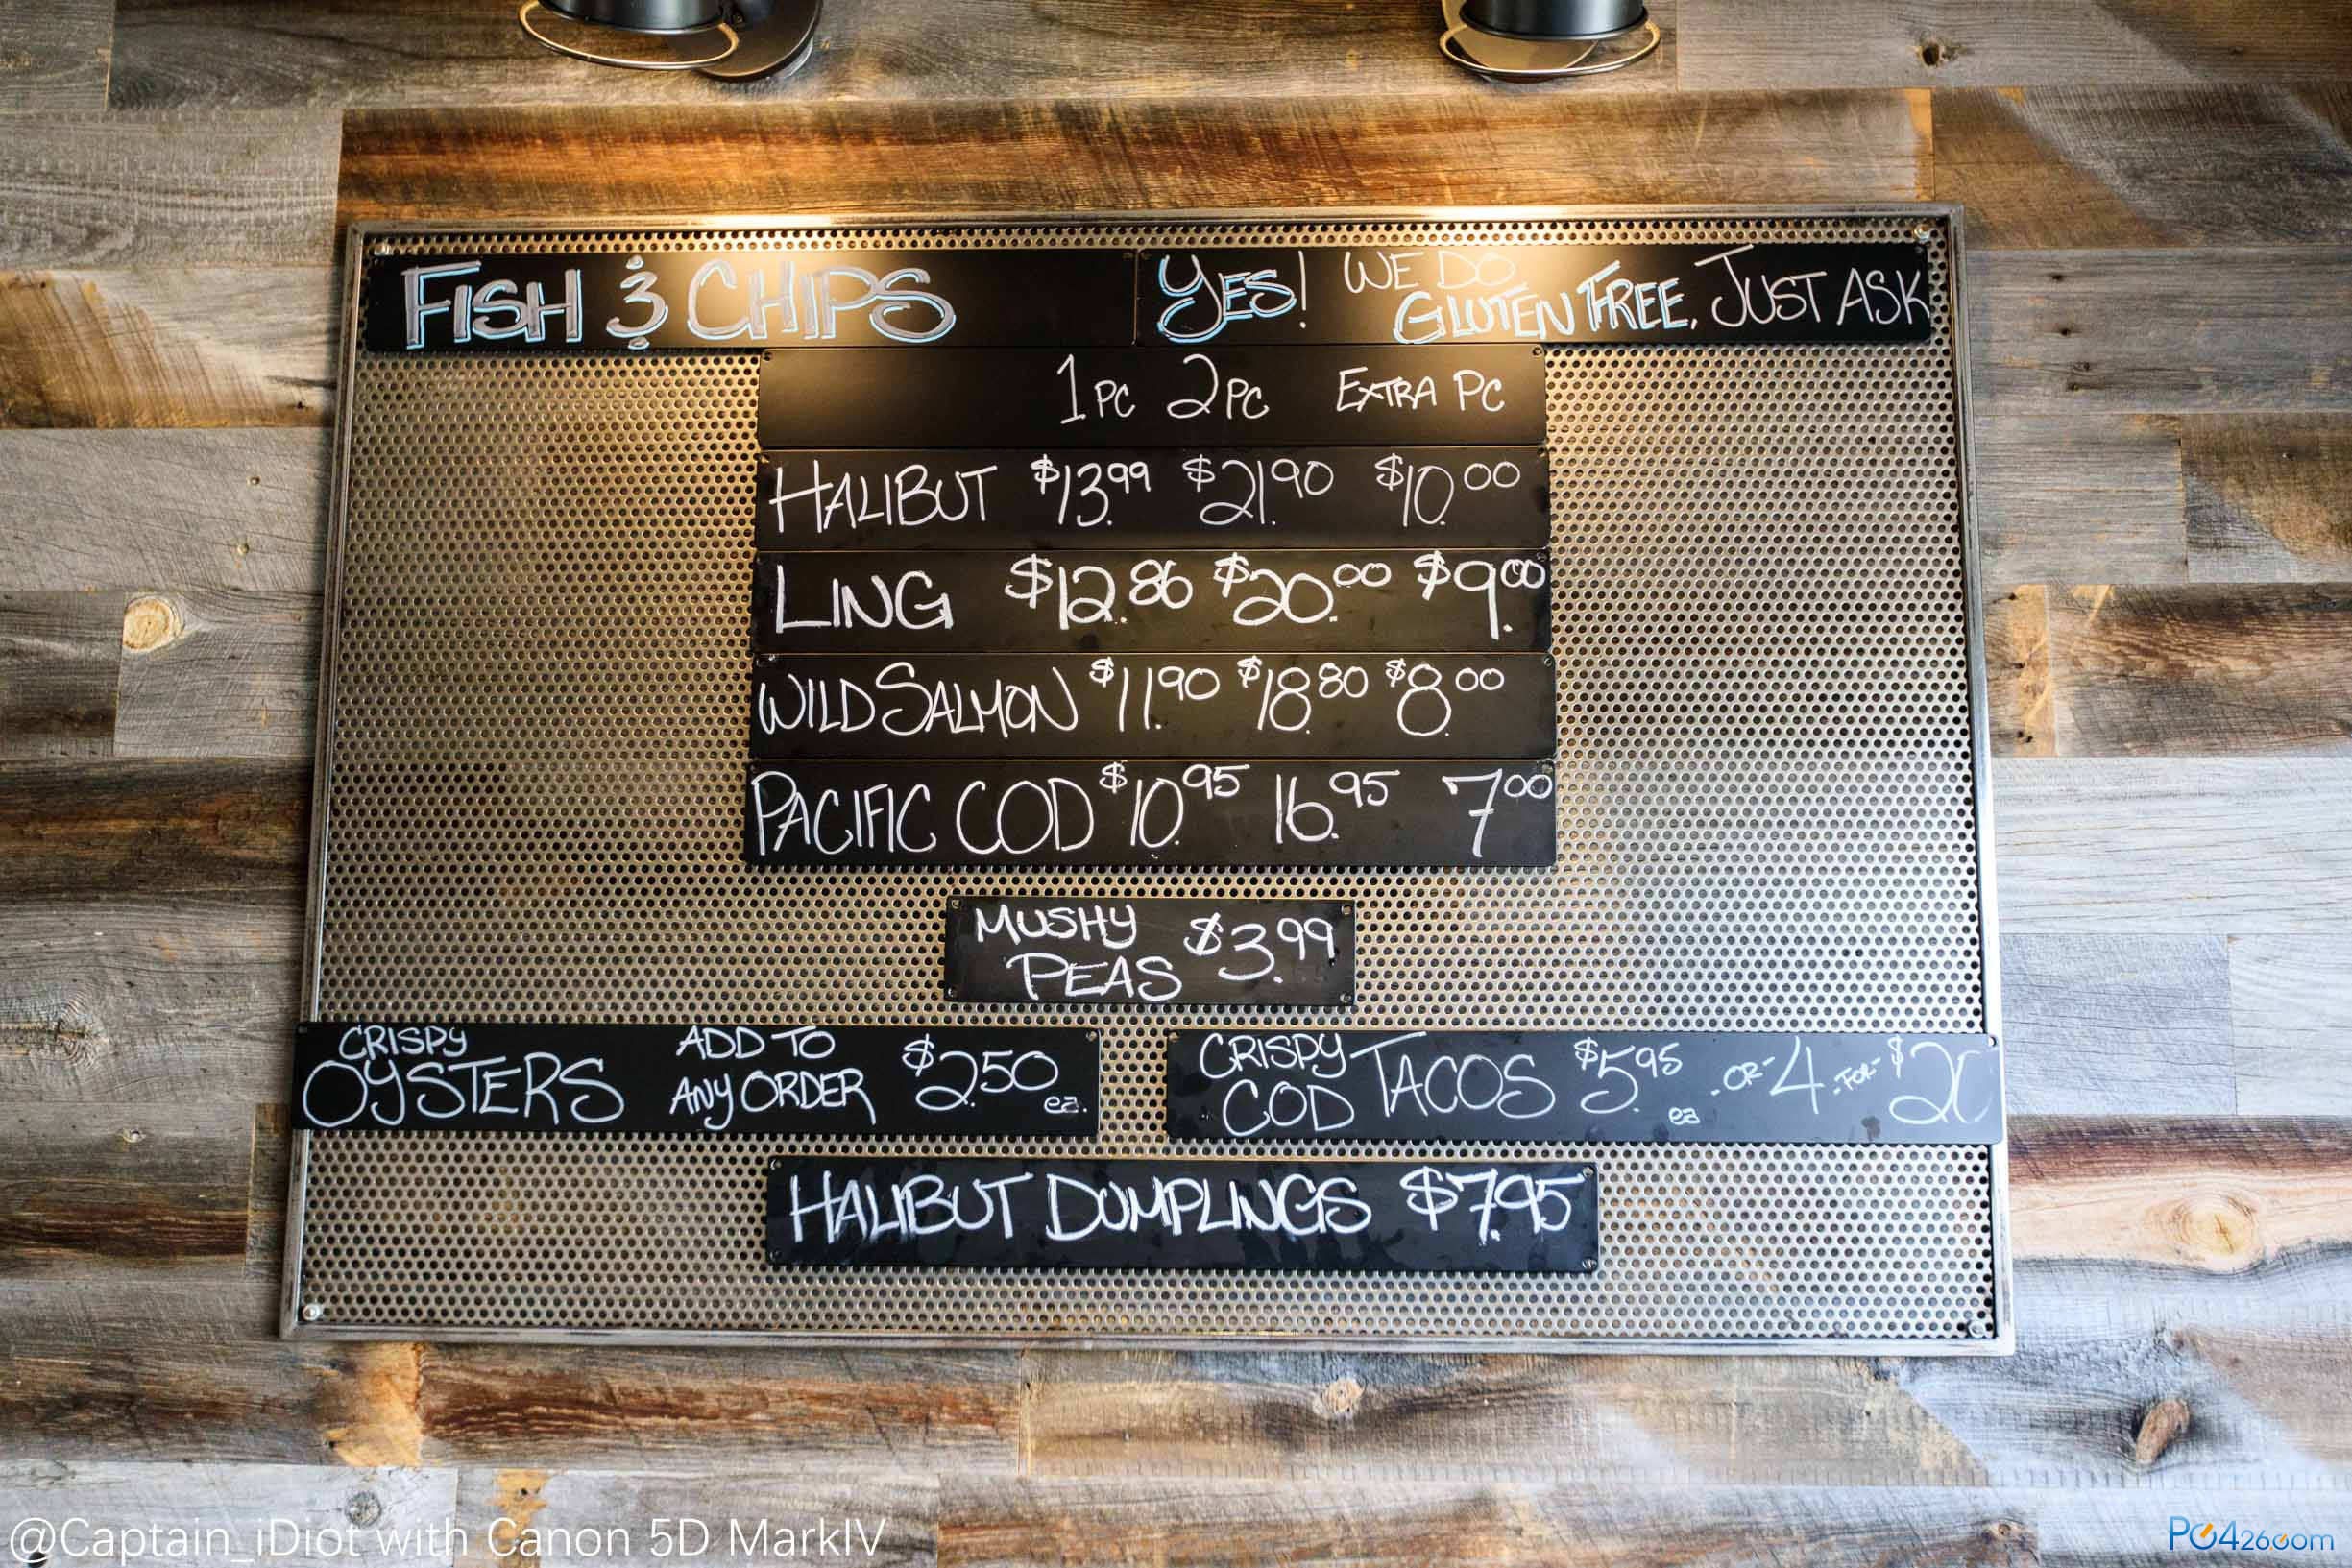 FISH & CHIPS
YES! WE DO
GLUTEN FREE, JUST ASK
1 PC 2 PC EXTRA PC
HALIBUT $13.99 $21.90 $10.00
LING $12.86 $20.00 $9.00
WILD SALMON $11.90 $18.80 $8.00
PACIFIC COD $10.95 16.95 7.00
MUSHY
PEAS $3.99
CRISPY
OYSTERS
ADD TO
ANY ORDER
$2.50 ea.
CRISPY
COD
TACOS $5.95 ea -OR- 4 -FOR- $20
HALIBUT DUMPLINGS $7.95
@Captain_iDiot with Canon 5D MarkIV
PC426.com